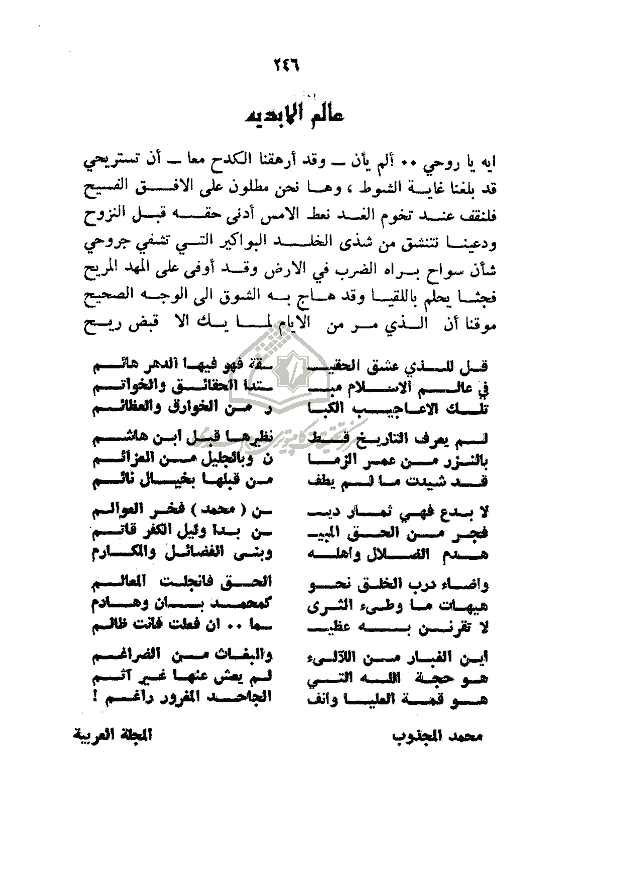 ٢٤٦
عالم الابديه
ايه يا روحي ٠٠ ألم يأن ــ وقد أرهقنا الكدح معا ــ أن تستريحي
قد بلغنا غاية الشوط ، وها نحن مطلون على الافق الفسيح
فلنقف عند تخوم الغد نعط الامس أدنى حقه قبل النزوح
ودعينا نتنشق من شذى الخلد البواكير التي تشفي جروحي
شأن سواح براه الضرب في الارض وقد أوفى على المهد المريح
فجثا يحلم باللقيا وقد هاج به الشوق الى الوجه الصحيح
موقنا أن الذي مر من الايام لما يك الا قبض ريح
قل للذي عشق الحقيـ ـقة فهو فيها الدهر هائم
في عالم الاسلام مبـ ـتدا الحقائق والخواتم
تلك الاعاجيب الكبا ر من الخوارق والعظائم
لم يعرف التاريخ قط نظيرها قبل ابن هاشم
بالنزر من عمر الزما ن وبالجليل من العزائم
قد شيدت ما لم يطف من قبلها بخيال نائم
لا بدع فهي ثمار ديـ ـن ( محمد ) فخر العوالم
فجر من الحق المبيـ ـن بدا وليل الكفر قاتم
هدم الضلال واهله وبنى الفضائل والمكارم
واضاء درب الخلق نحو الحق فانجلت المعالم
هيهات ما وطىء الثرى كمحمد بان وهادم
لا تقرنن به عظيـ ـما ٠٠ ان فعلت فانت ظالم
اين الغبار من اللآلىء والبغاث من الضراغم
هو حجة الله التي لم يعش عنها غير آثم
هو قمة العليا وانف الجاحد المغرور راغم !
محمد المجذوب المجلة العربية